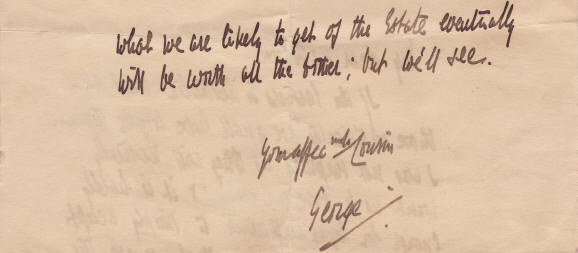 what we are likely to get of the Estate eventually
will be worth all the bother; but we'll see.
Your affec ate Cousin
George